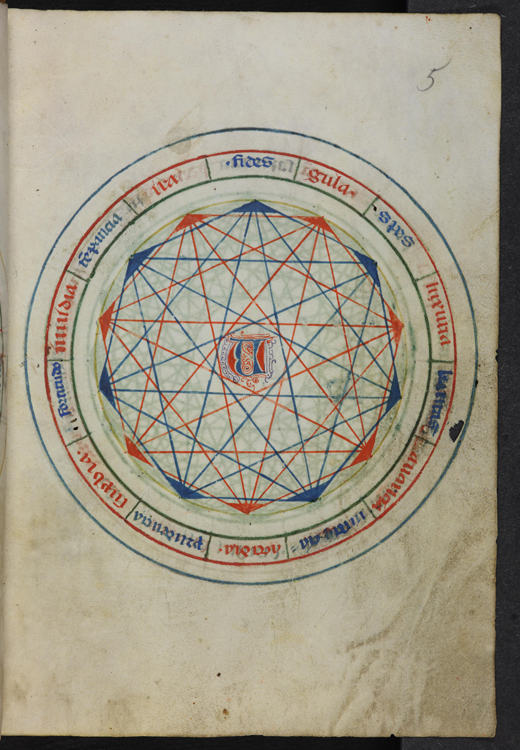 5
fides
gula
spes
luxuria
karitas
auaricia
iusticia
accidia
prudencia
supbia
fortitudo
inuidia
tēpancia
ira
V